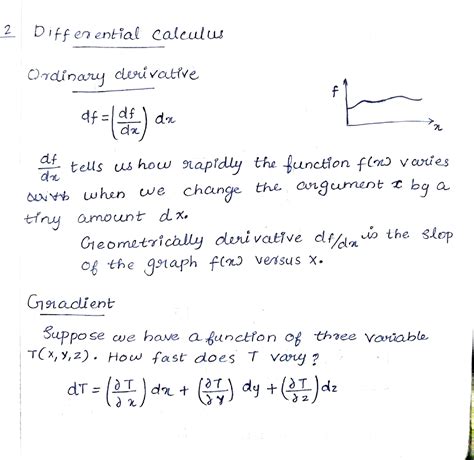 2 Differential Calculus
Ordinary derivative
df = (df/dx) dx
f
x
df/dx tells us how rapidly the function f(x) varies
when we change the argument x by a
tiny amount dx.
Geometrically derivative df/dx is the slop
of the graph f(x) versus x.
Gradient
Suppose we have a function of three variable
T(x,y,z). How fast does T vary?
dT = (∂T/∂x) dx + (∂T/∂y) dy + (∂T/∂z) dz